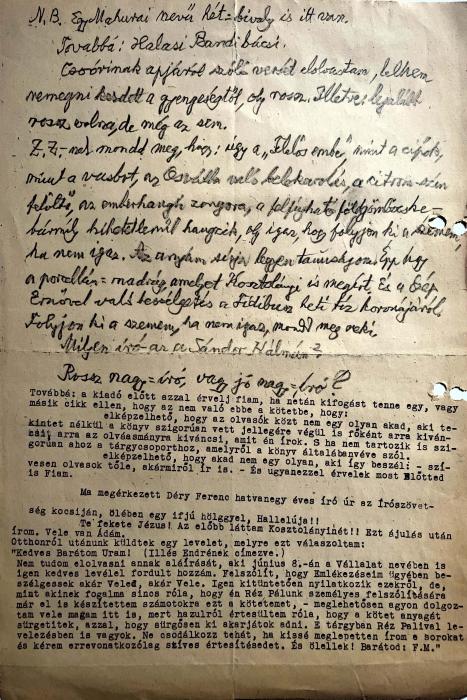 N.B. Egy Mahurai nevű hét=bivaly is itt van.
Továbbá: Halasi Bandi bácsi.
Csoórinak apjáról szóló versét elolvastam, lelkem
nemegni kezdett a gyengeségtől, oly rossz. Illetve: legalább
rossz volna, de még az sem.
Z.Z.-nek mondd meg, hogy: úgy a „Felelős ember", mint a cipők,
mint a vasbot, az Osvállal való belokovolás, a citrom=szín
felöltő, az emberhangú zongora, a felfújható földgömböcske-
bármily hihetetlenül hangzik, oly igaz, hogy folyjon ki a szemem,
ha nem igaz. Az anyám sírja legyen tanúságom. Épp így
a porcellán=madárig amelyet Kosztolányi is megírt. És a Gép
Ernővel való levelezés a Fidibusz heti tíz koronájáról.
Folyjon ki a szemem, ha nem igaz, mondd meg neki.
Milyen író az a Sándor Kálmán?
Rossz nagy=író, vagy jó nagy=író?
Továbbá: a kiadó előtt azzal érvelj fiam, ha netán kifogást tenne egy, vagy
másik cikk ellen, hogy az nem való ebbe a kötetbe, hogy:
elképzelhető, hogy az olvasók közt nem egy olyan akad, aki te-
kintet nélkül a könyv szigorúan vett jellegére végül is főként arra kiván-
csi arra az olvasmányra kiváncsi, amit én írok. S ha nem tartozik is szi-
gorúan ahoz a tárgycsoporthoz, amelyről a könyv általábanvéve szól.
elképzelhető, hogy akad nem egy olyan, aki így beszél: - szí-
vesen olvasok tőle, akármiről ír is. - És ugyanezzel érvelek most Előtted
is Fiam.
Ma megérkezett Déry Ferenc hatvanegy éves író úr az Írószövet-
ség kocsiján, ölében egy ifjú hölggyel, Hallelúja!!
Te fekete Jézus! Az előbb láttam Kosztolányinét!! Ezt ájulás után
írom. Vele van Ádám.
Otthonról utánunk küldtek egy levelet, melyre ezt válaszoltam:
"Kedves Barátom Uram! (Illés Endrének címezve.)
Nem tudom elolvasni annak aláírását, aki június 8.-án a Vállalat nevében is
igen kedves levéllel fordult hozzám. Felszólít, hogy Emlékezésem ügyében be-
szélgessek akár Veled, akár Vele. Igen kitüntetően nyilatkozik ezekről, de,
mint akinek fogalma sincs róla, hogy én Réz Pálunk személyes felszólítására
már el is készítettem számotokra ezt a kötetemet, - meglehetősen agyon dolgoz-
tam vele magam itt is, mert hazulról értesültem róla, hogy a kötet anyagát
sürgetitek, azzal, hogy sürgősen ki akarjátok adni. E tárgyban Réz Palival le-
velezésben is vagyok. Ne csodálkozz tehát, ha kissé meglepetten írom e sorokat
és kérem errevonatkozólag szíves értesítésedet. És ölellek! Barátod: F.M."